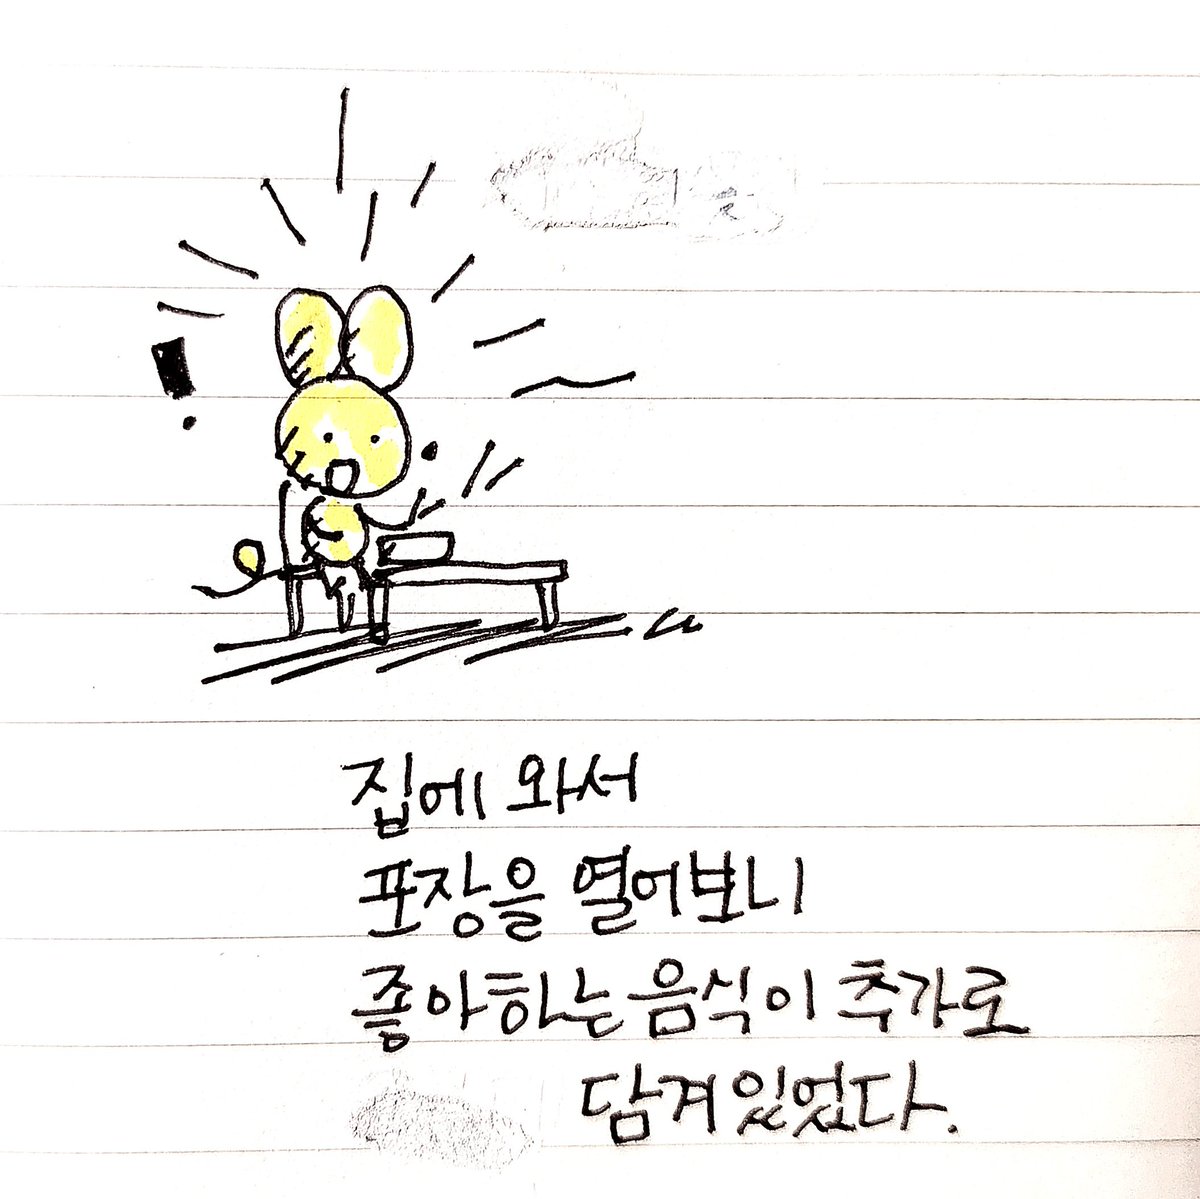 집에 와서
포장을 열어보니
좋아하는 음식이 추가로
담겨있었다.